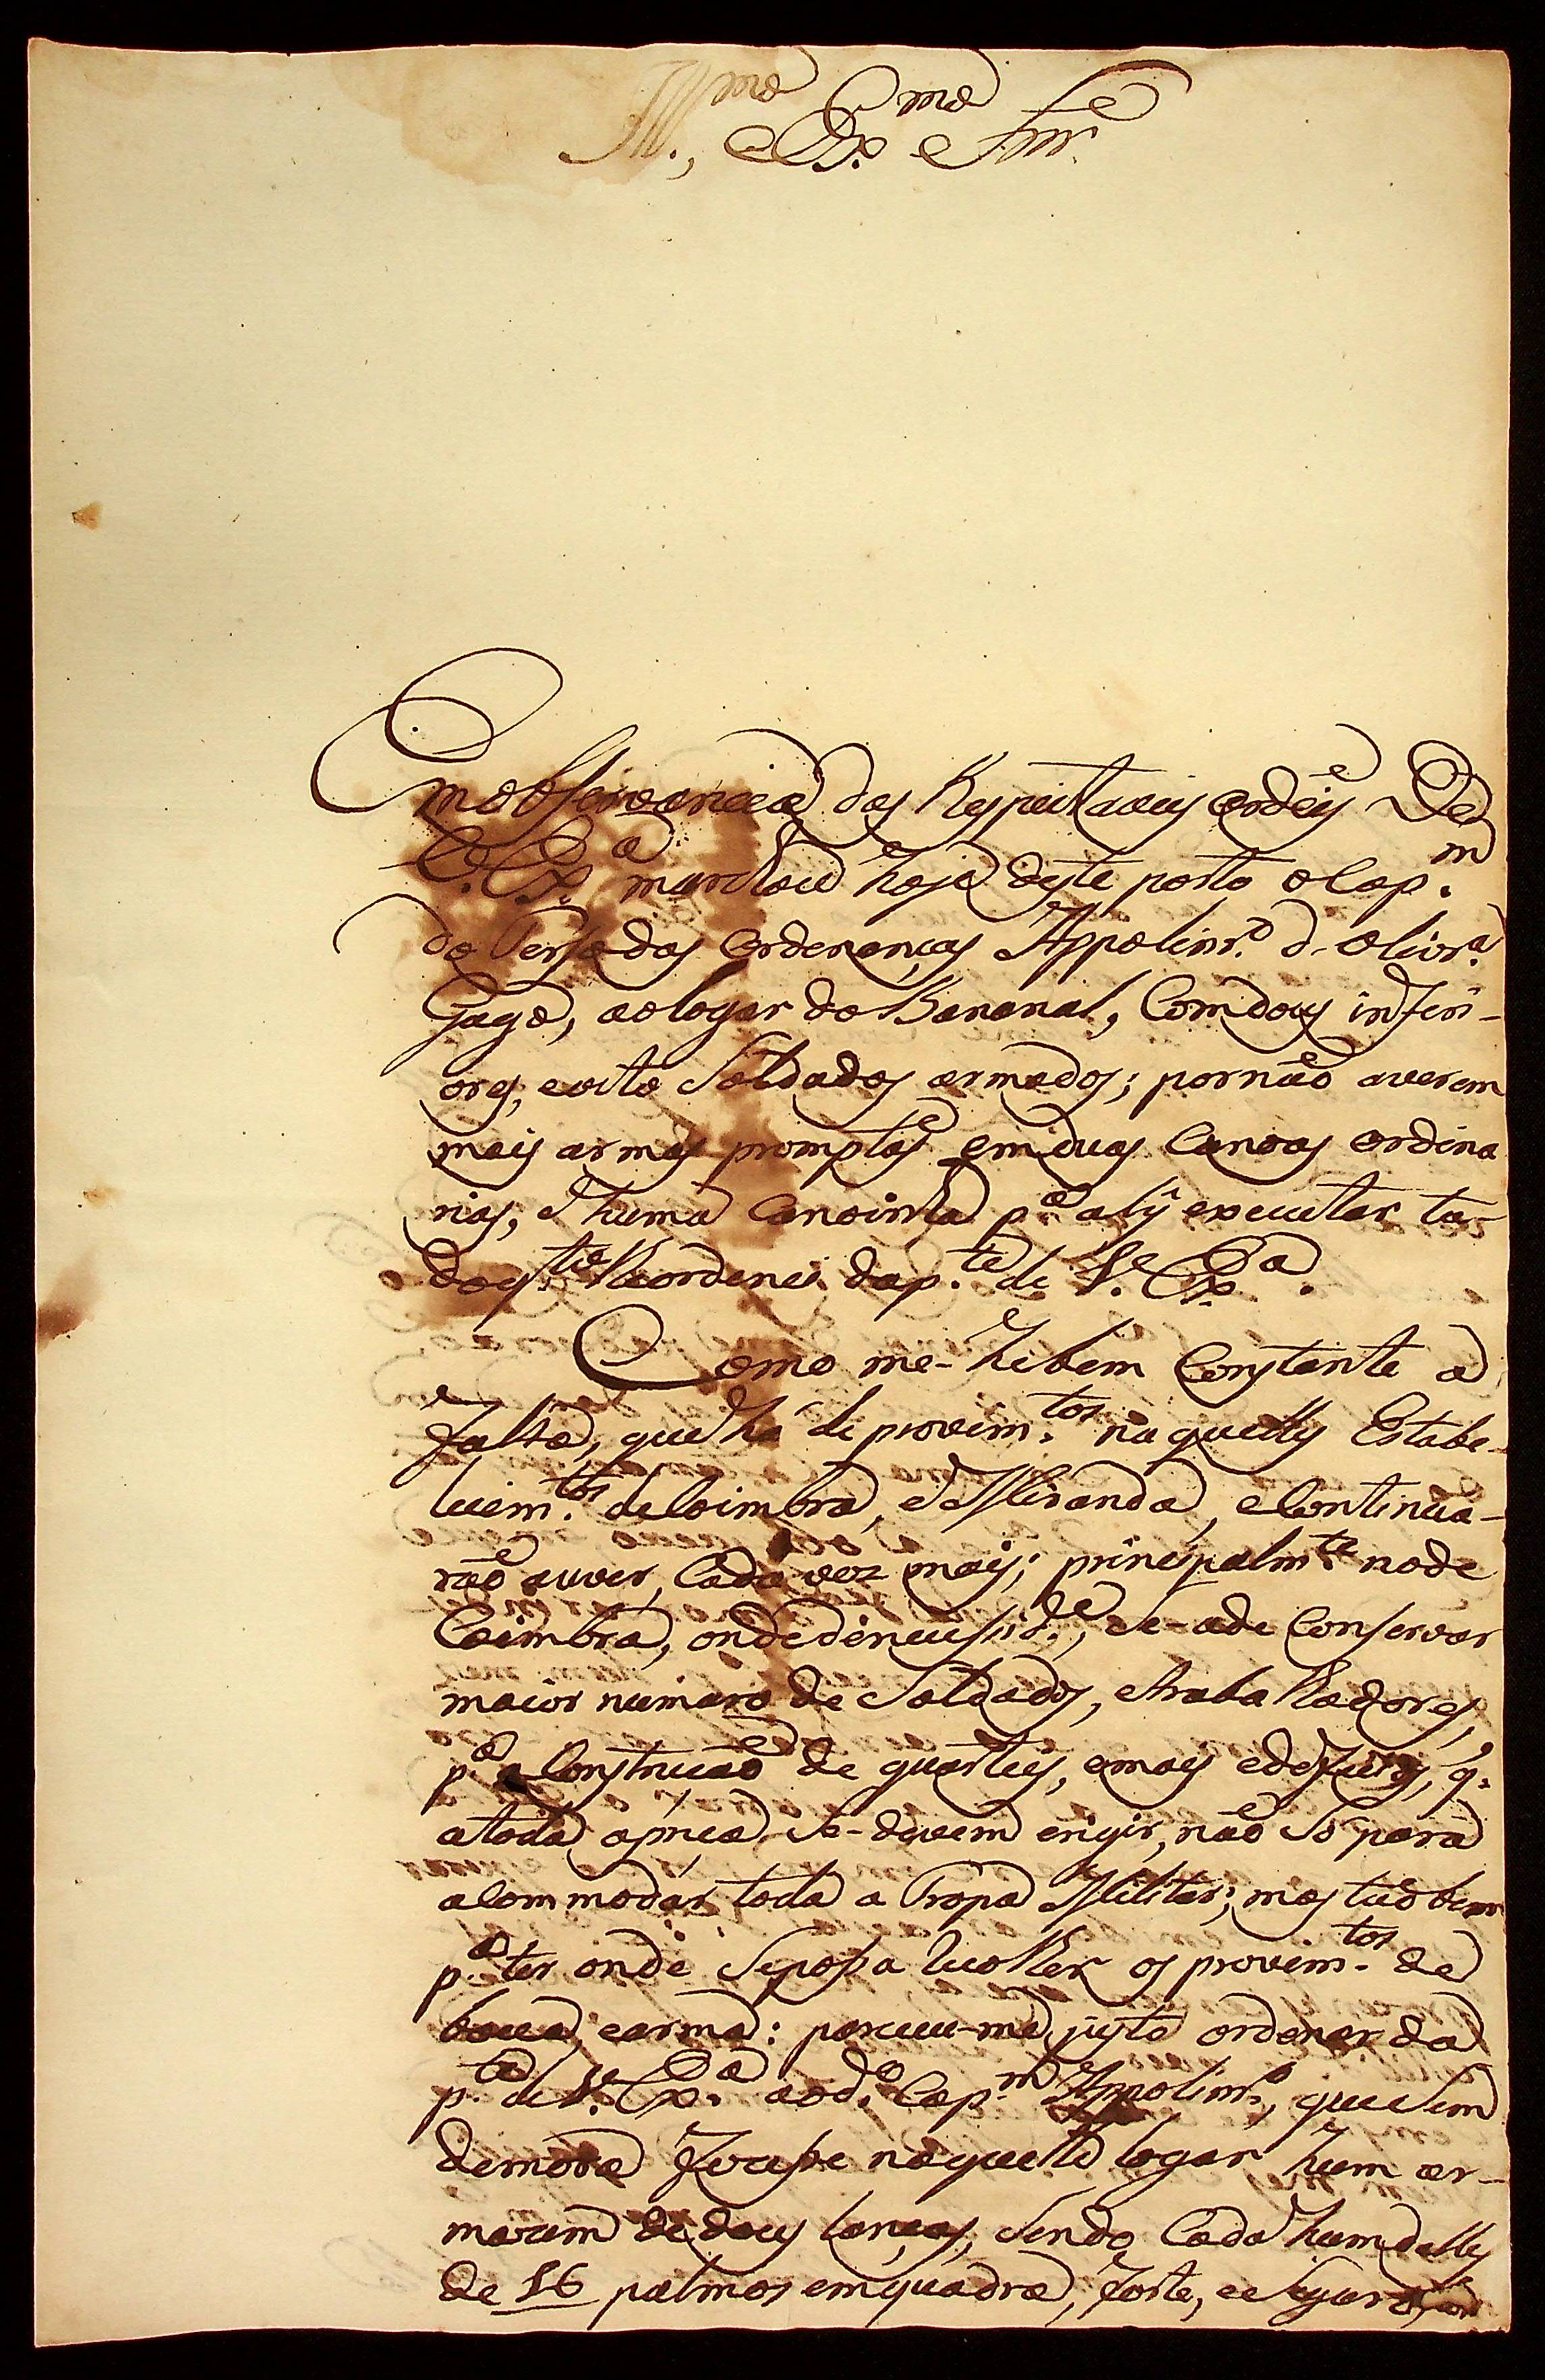 Ill.mo, e Ex.mo Snr.
Em observancia das Respeitaveis ordeis De
V. Ex.a marchou hoje deste porto o Cap.m
do Terso das Ordenanças Appolinr.o d'Olivr.a
Gago, ao logar do Bananal, Com dous inferi-
ores, e oito Soldados armados; por não averem
mais armas promptas em duas Canoas ordina
rias, e huma Canoinha p.a aly executar to-
do q.to lhe ordenei da p.te de V. Ex.a.
Como me-hé bem Constante a
falta, que há de provim.tos naquelles Estabe-
lecim.tos de Coimbra, e Miranda, e Continua-
rão aver, Cada vez mais; principalm.te no de
Coimbra, onde de necessid.e, Se-a de Conservar
maior numaro de Soldados, e trabalhadores,
p.a a Construcão de quarteis, e mais edeficios, q.
a toda apréca Se-devem erigir, não Só para
acommodar toda a Tropa Militar; mas tãobem
p.a ter onde Se possa recolher os provim.tos de
boca, e arma: pareceu-me justo ordenar da
p.te de V. Ex.a ao d.o Cap.m Appolinr.o, que Sem
demora fizesse naquelle logar hum ar-
mazem de dous lanços, Sendo Cada hum delles
de 16 palmos em quadra, forte, e Seguro,